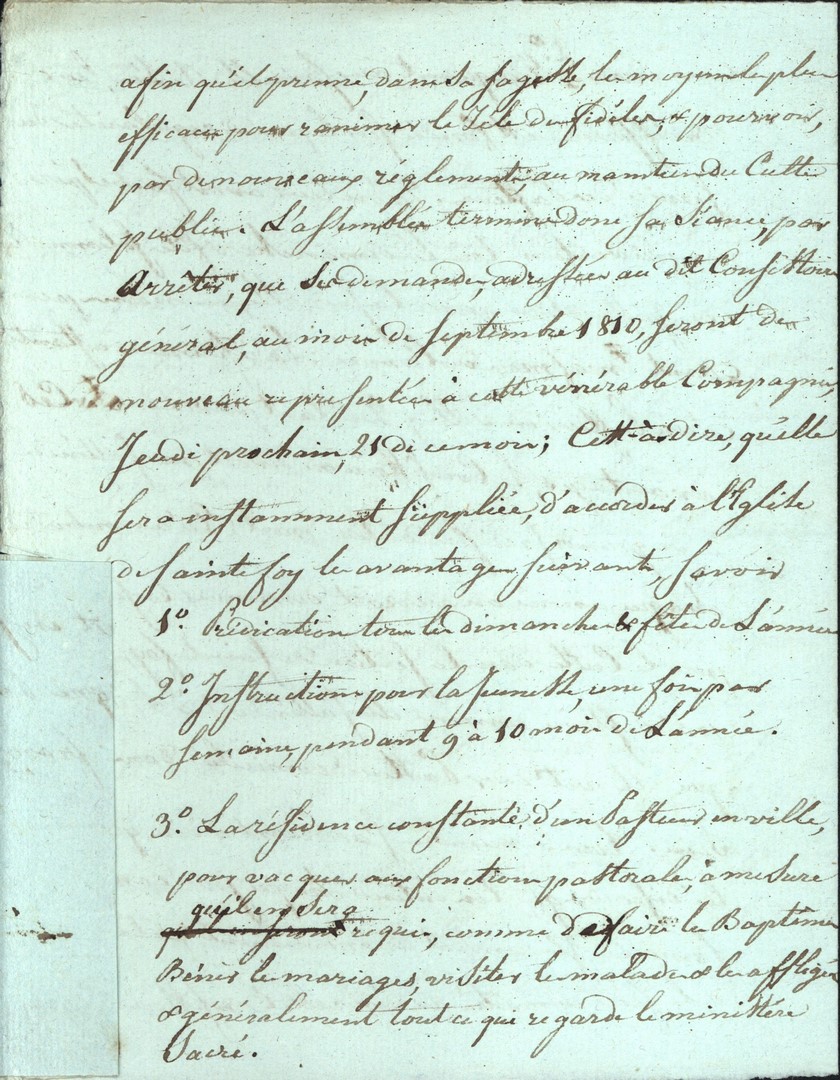 afin qu'il prenne, dans sa sagesse, les moyens les plus
efficaces pour ranimer le Zèle des fidèles, & pourvoir,
par de nouveaux réglements, au maintien du Culte
public. L'assemblée termine donc sa séance, par
Arrêter, que ses demandes, adressées au dit Consistoire
général, au mois de septembre 1810, seront de
nouveau représentées à cette vénérable Compagnie,
Jeudi prochain, 21 de ce mois; C'est-à-dire, qu'elle
sera instamment suppliée, d'accorder à l'Eglise
de Sainte foy les avantages suivants, savoir
1.° Prédication tous les dimanches & fêtes de L'année
2.° Instructions pour la Jeunesse, une fois par
semaine, pendant 9 à 10 mois de L'année.
3.° La résidence constante d'un Pasteur en ville,
pour vacquer aux fonctions pastorales, à mesure
qu'il en sera
requis, comme de faire les Baptêmes
Bénir les mariages, visiter les malades & les affligés
& généralement tout ce qui regarde le ministère
Sacré.